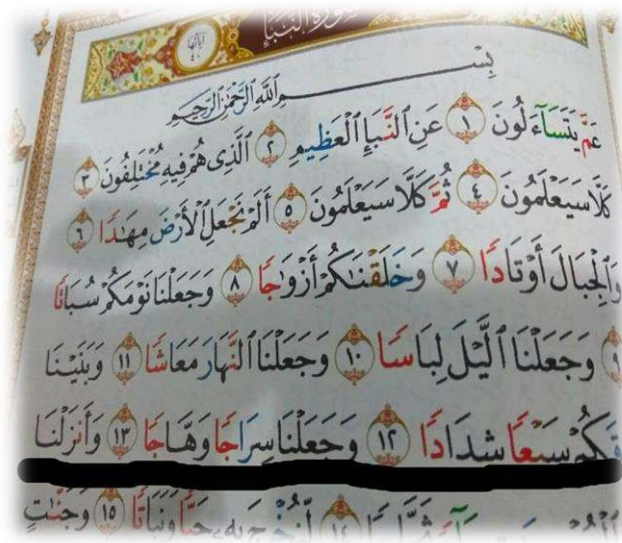 سُورَةُ النَّبَإِ
آيَاتُهَا ٤٠
بِسْمِ ٱللَّهِ ٱلرَّحْمَٰنِ ٱلرَّحِيمِ
عَمَّ يَتَسَآءَلُونَ ١ عَنِ ٱلنَّبَإِ ٱلْعَظِيمِ ٢ ٱلَّذِى هُمْ فِيهِ مُخْتَلِفُونَ ٣
كَلَّا سَيَعْلَمُونَ ٤ ثُمَّ كَلَّا سَيَعْلَمُونَ ٥ أَلَمْ نَجْعَلِ ٱلْأَرْضَ مِهَٰدًا ٦
وَٱلْجِبَالَ أَوْتَادًا ٧ وَخَلَقْنَٰكُمْ أَزْوَٰجًا ٨ وَجَعَلْنَا نَوْمَكُمْ سُبَاتًا
٩ وَجَعَلْنَا ٱلَّيْلَ لِبَاسًا ١٠ وَجَعَلْنَا ٱلنَّهَارَ مَعَاشًا ١١ وَبَنَيْنَا
سَبْعًا شِدَادًا ١٢ وَجَعَلْنَا سِرَاجًا وَهَّاجًا ١٣ وَأَنزَلْنَا
حَبًّا وَنَبَاتًا ١٥ وَجَنَّٰتٍ